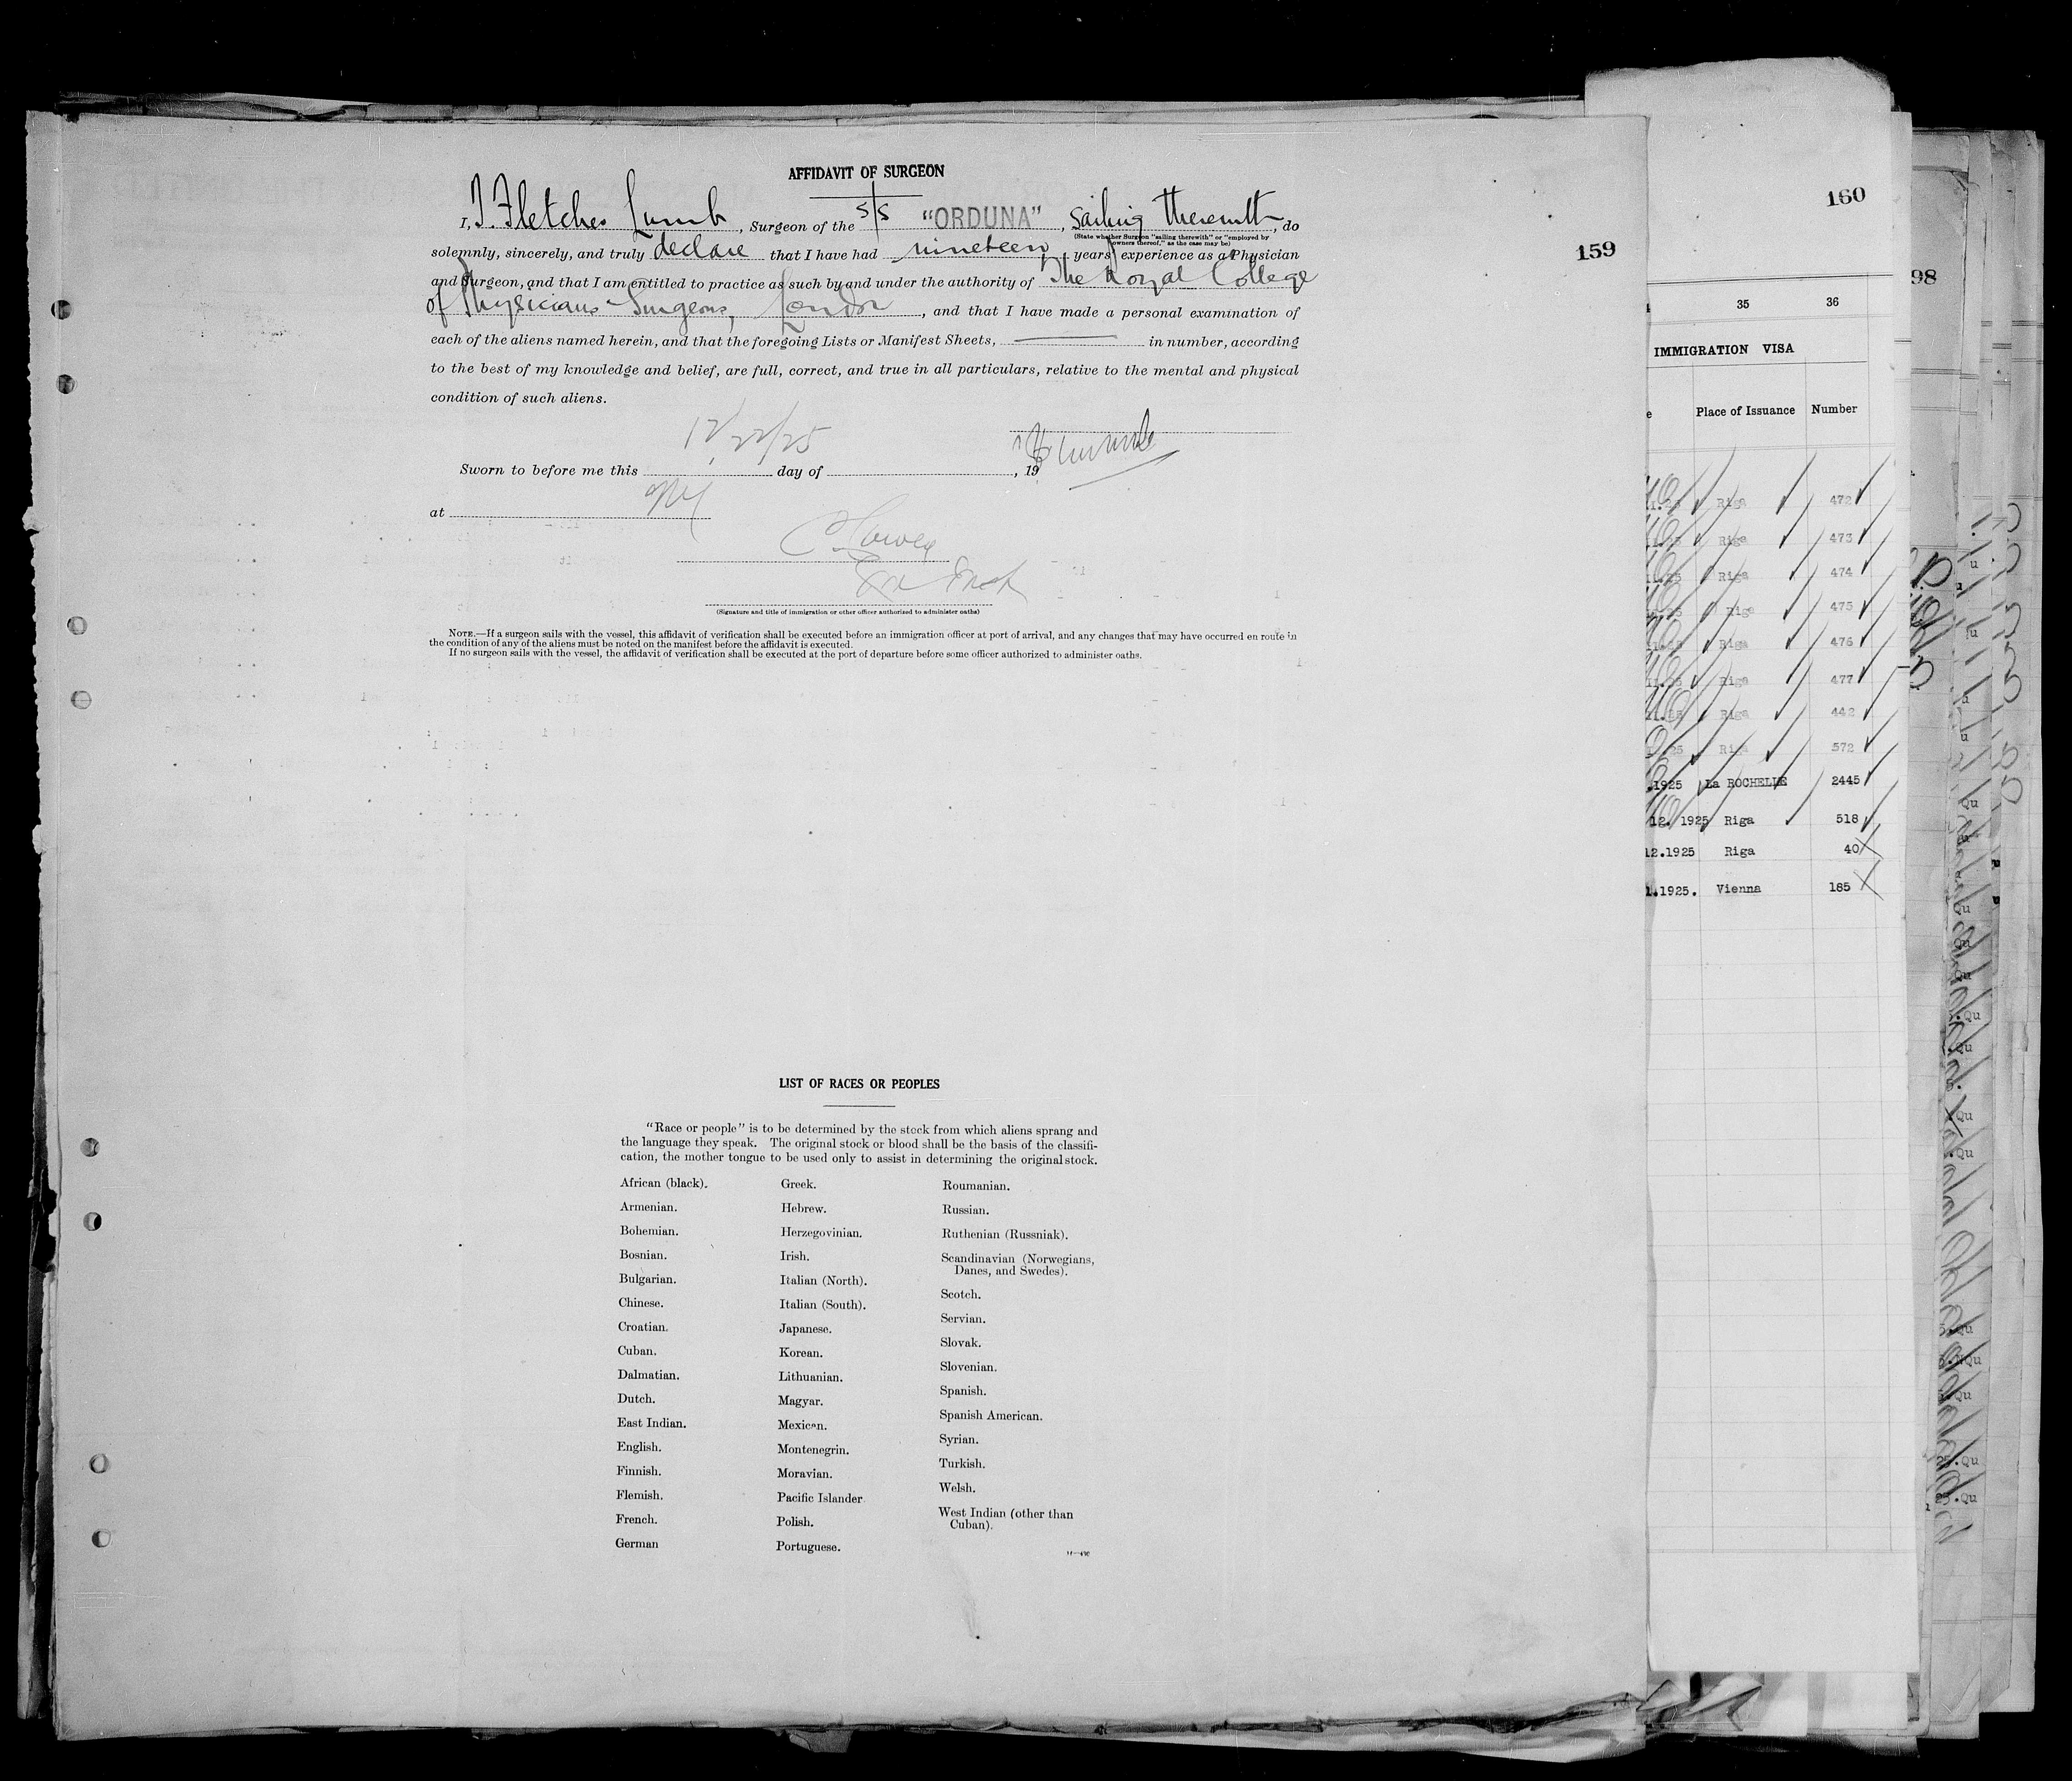 160
159
98
AFFIDAVIT OF SURGEON
I, J. Fletcher Lumb, Surgeon of the S/S "ORDUNA", sailing therewith, do
(State whether Surgeon "sailing therewith" or "employed by
owners thereof," as the case may be)
solemnly, sincerely, and truly declare that I have had nineteen years' experience as a Physician
and Surgeon, and that I am entitled to practice as such by and under the authority of The Royal College
of Physicians Surgeons, London, and that I have made a personal examination of
each of the aliens named herein, and that the foregoing Lists or Manifest Sheets, in number, according
to the best of my knowledge and belief, are full, correct, and true in all particulars, relative to the mental and physical
condition of such aliens.
12/22/25
Sworn to before me this day of , 19
at NY
(Signature and title of immigration or other officer authorized to administer oaths)
NOTE.—If a surgeon sails with the vessel, this affidavit of verification shall be executed before an immigration officer at port of arrival, and any changes that may have occurred en route in
the condition of any of the aliens must be noted on the manifest before the affidavit is executed.
If no surgeon sails with the vessel, the affidavit of verification shall be executed at the port of departure before some officer authorized to administer oaths.
LIST OF RACES OR PEOPLES
"Race or people" is to be determined by the stock from which aliens sprang and
the language they speak. The original stock or blood shall be the basis of the classifi-
cation, the mother tongue to be used only to assist in determining the original stock.
African (black).
Armenian.
Bohemian.
Bosnian.
Bulgarian.
Chinese.
Croatian.
Cuban.
Dalmatian.
Dutch.
East Indian.
English.
Finnish.
Flemish.
French.
German
Greek.
Hebrew.
Herzegovinian.
Irish.
Italian (North).
Italian (South).
Japanese.
Korean.
Lithuanian.
Magyar.
Mexican.
Montenegrin.
Moravian.
Pacific Islander
Polish.
Portuguese.
Roumanian.
Russian.
Ruthenian (Russniak).
Scandinavian (Norwegians,
Danes, and Swedes).
Scotch.
Servian.
Slovak.
Slovenian.
Spanish.
Spanish American.
Syrian.
Turkish.
Welsh.
West Indian (other than
Cuban).
35 36
IMMIGRATION VISA
Place of Issuance Number
Riga 472
Riga 473
Riga 474
Riga 475
Riga 476
Riga 477
Riga 442
Riga 572
.1925 La ROCHELLE 2445
12. 1925 Riga 518
12.1925 Riga 40
1.1925. Vienna 185